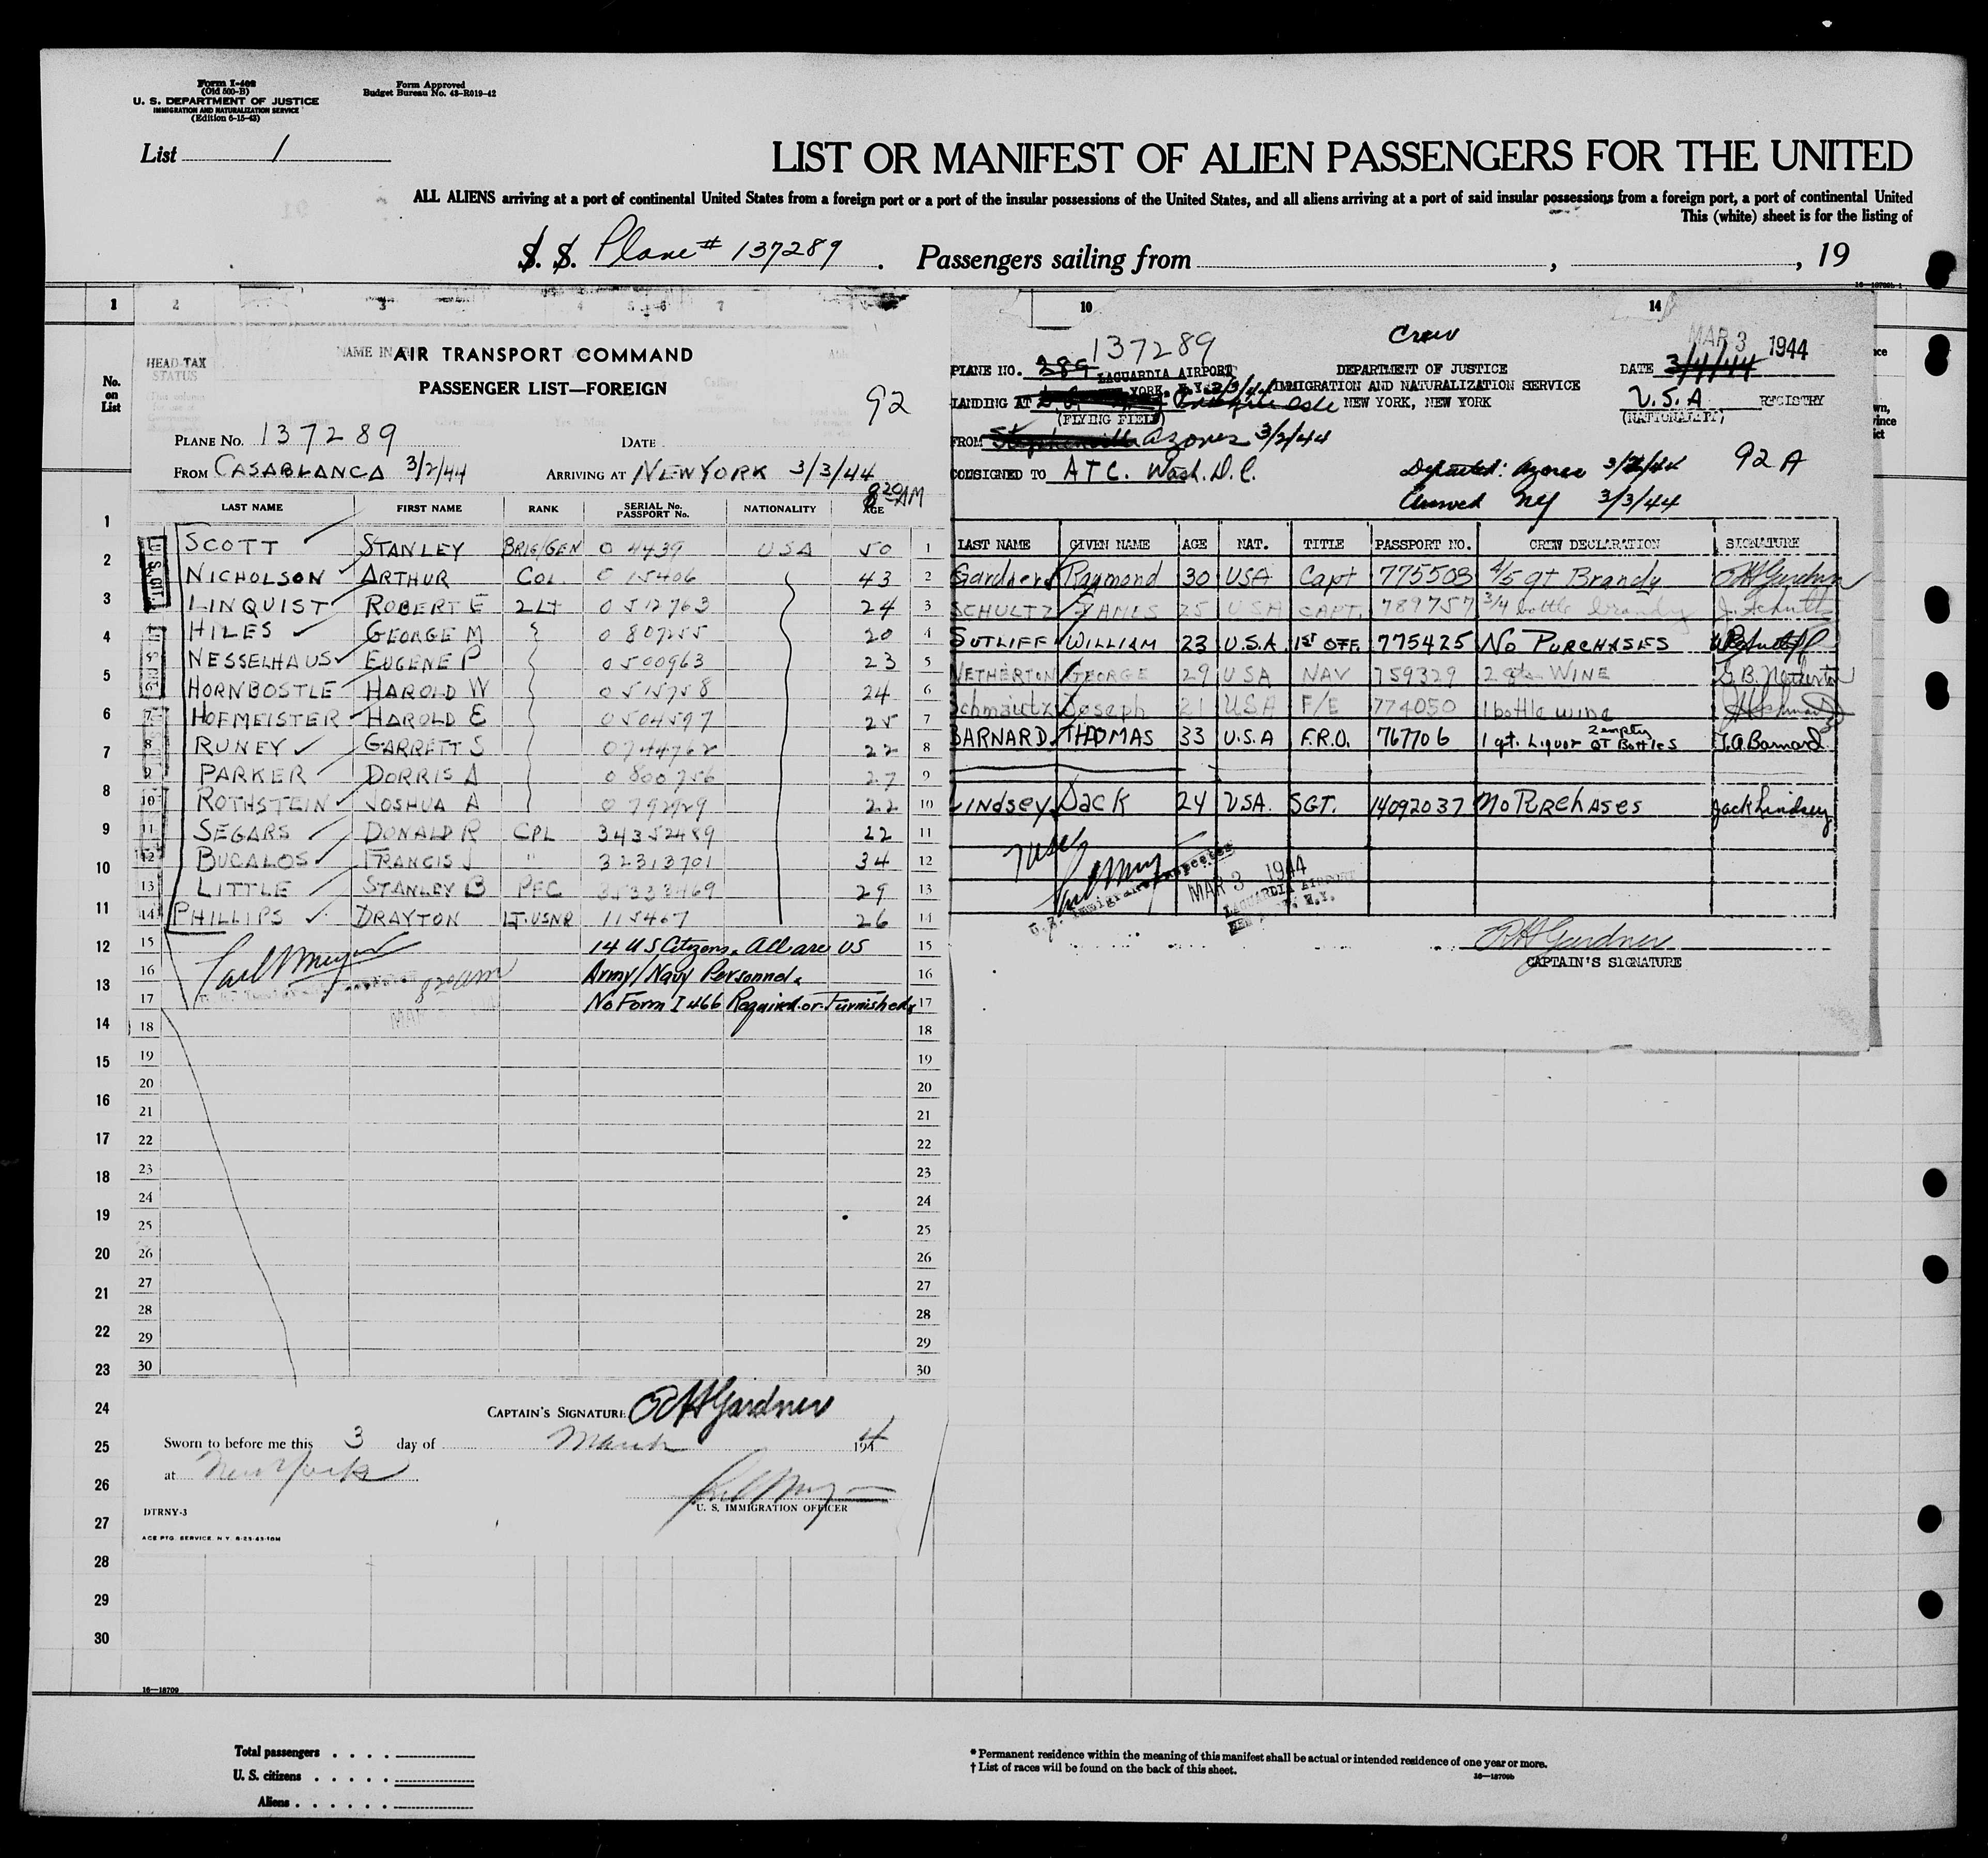 Form I-402
(Old 500-B)
U. S. DEPARTMENT OF JUSTICE
IMMIGRATION AND NATURALIZATION SERVICE
(Edition 6-15-43)
Form Approved
Budget Bureau No. 43-R019-42
List 1
LIST OR MANIFEST OF ALIEN PASSENGERS FOR THE UNITED
ALL ALIENS arriving at a port of continental United States from a foreign port or a port of the insular possessions of the United States, and all aliens arriving at a port of said insular possessions from a foreign port, a port of continental United
This (white) sheet is for the listing of
S. S. Plane # 137289 . Passengers sailing from , , 19
1 2 3 4 5 6 7
No. on List
HEAD-TAX STATUS
NAME IN
AIR TRANSPORT COMMAND
PASSENGER LIST—FOREIGN
92
PLANE NO. 137289 DATE
FROM CASABLANCA 3/2/44 ARRIVING AT NEW YORK 3/3/44
8 20 AM
LAST NAME FIRST NAME RANK SERIAL NO. PASSPORT NO. NATIONALITY AGE
SCOTT STANLEY BRIG/GEN 0 4439 USA 50 1
NICHOLSON ARTHUR COL. 0 15406 43 2
LINQUIST ROBERT E 2 LT 0 512763 24 3
HILES GEORGE M 0 807255 20 4
NESSELHAUS EUGENE P 0500963 23 5
HORNBOSTLE HAROLD W 0515758 24 6
7 HOFMEISTER HAROLD E 0504597 25 7
8 RUNEY GARRETT S 22 8
9 PARKER DORRIS A 0 800756 27 9
10 ROTHSTEIN JOSHUA A 22 10
11 SEGARS DONALD R CPL 34352489 22 11
12 BUCALOS FRANCIS J " 32313701 34 12
13 LITTLE STANLEY B PFC 35333469 29 13
14 PHILLIPS DRAYTON LT. USNR 115467 26 14
15 14 US Citizens. All are US 15
16 Army/Navy Personnel. 16
17 No Form I 466 Required or Furnished. 17
8 20 AM
18 18
19 19
20 20
21 21
22 22
23 23
24 24
25 25
26 26
27 27
28 28
29 29
30 30
CAPTAIN'S SIGNATURE RH Gardner
Sworn to before me this 3 day of March 194 4
at New York
U. S. IMMIGRATION OFFICER
DTRNY-3
ACE PTG. SERVICE. N. Y. 8-25-43-10M
10 14
Crew
MAR 3 1944
PLANE NO. 289 137289 DEPARTMENT OF JUSTICE DATE 3/4/44
LAGUARDIA AIRPORT
IMMIGRATION AND NATURALIZATION SERVICE
LANDING AT NEW YORK, NEW YORK U.S.A REGISTRY
(FLYING FIELD) (NATIONALITY)
FROM Stephenville Azores 3/2/44
CONSIGNED TO ATC. Wash. D.C.
Departed: Azores 3/2/44 92 A
Arrived NY 3/3/44
LAST NAME GIVEN NAME AGE NAT. TITLE PASSPORT NO. CREW DECLARATION SIGNATURE
Gardner Raymond 30 USA Capt 775503 4/5 qt Brandy RH Gardner
SCHULTZ JAMES 25 USA CAPT. 789757 3/4 bottle brandy J. Schultz
SUTLIFF WILLIAM 23 U.S.A. 1ST OFF. 775425 NO PURCHASES
NETHERTON GEORGE 29 USA NAV 759329 2 qts WINE G.B. Netherton
Schmautz Joseph 21 U.S.A F/E 774050 1 bottle wine
BARNARD THOMAS 33 U.S.A F.R.O. 767706 1 qt. Liquor 2 empty QT Bottles T.A. Barnard
Lindsey Jack 24 USA. SGT. 14092037 No Purchases Jack Lindsey
7 USC
U. S. Immigrant Inspector
MAR 3 1944
LAGUARDIA AIRPORT
NEW YORK, N.Y.
RH Gardner
CAPTAIN'S SIGNATURE
1
2
3
4
5
6
7
8
9
10
11
12
13
14
15
16
17
18
19
20
21
22
23
24
25
26
27
28
29
30
16—18709
Total passengers
U. S. citizens
Aliens
* Permanent residence within the meaning of this manifest shall be actual or intended residence of one year or more.
† List of races will be found on the back of this sheet.